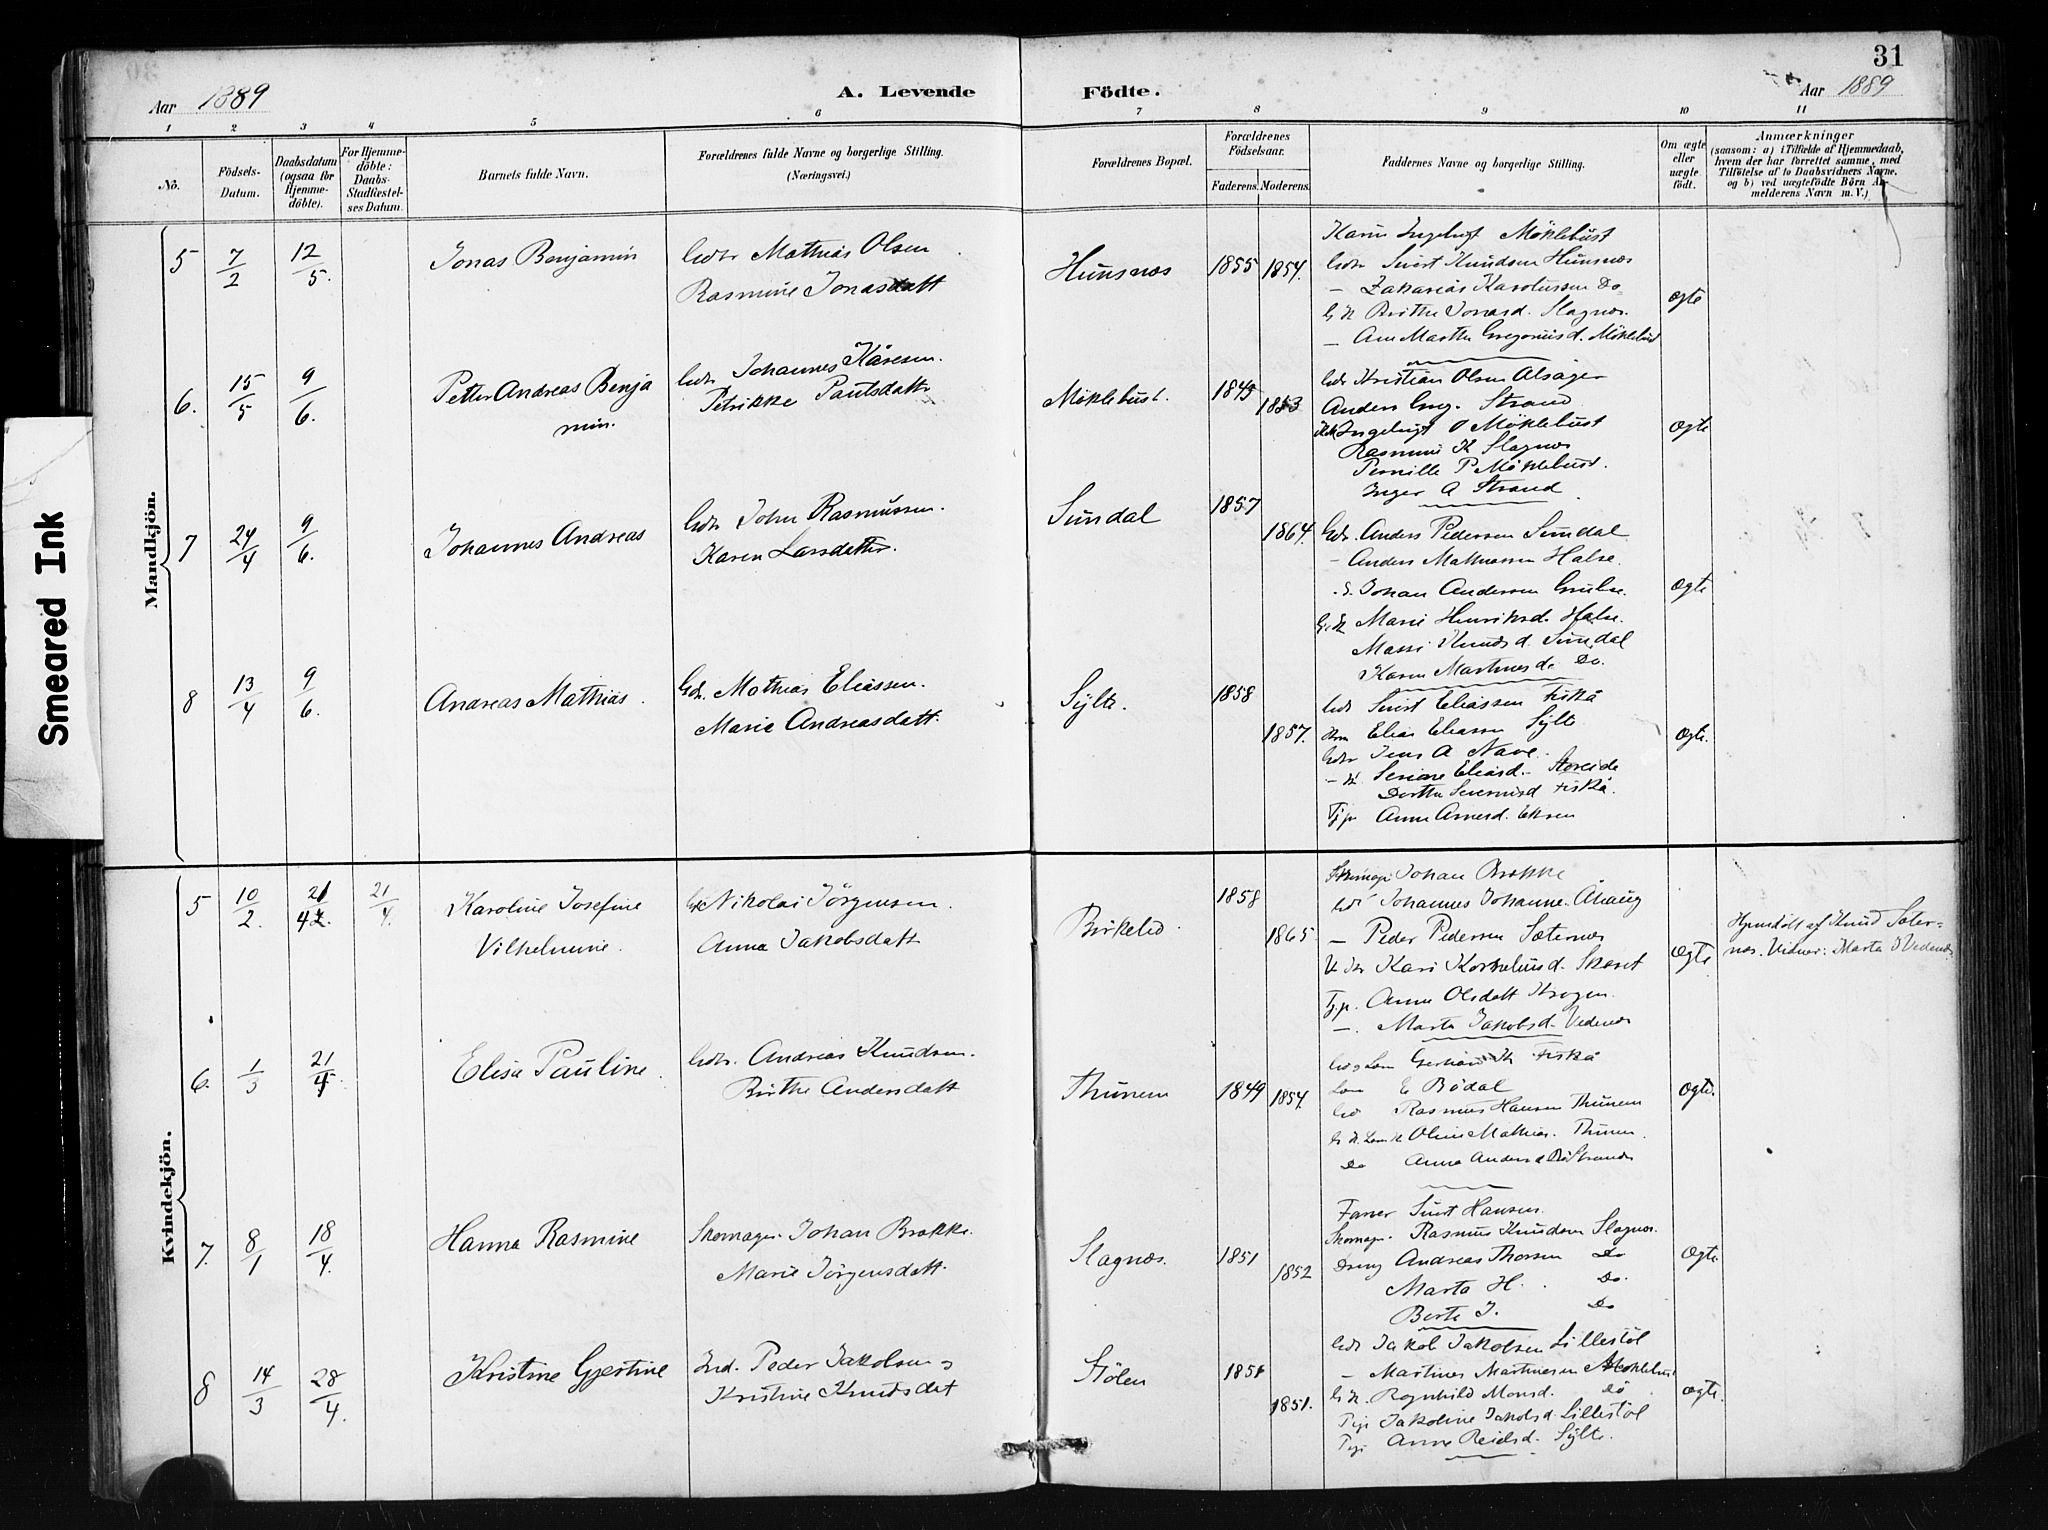 31
Aar 1889 A. Levende Födte. Aar 1889
1 2 3 4 5 6 7 8 9 10 11
No.
Födsels-
Datum.
Daabsdatum
(ogsaa for
Hjemme-
döbte).
For Hjemme-
döbte:
Daabs-
Stadfæstel-
ses Datum.
Barnets fulde Navn.
Forældrenes fulde Navne og borgerlige Stilling.
(Næringsvei.)
Forældrenes Bopæl.
Forældrenes
Födselsaar.
Faderens. Moderens.
Faddernes Navne og borgerlige Stilling.
Om ægte
eller
uægte
födt.
Anmærkninger
(saasom: a) i Tilfælde af Hjemmedaab,
hvem der har forrettet samme, med
Tilföielse af to Daabsvidners Navne.
og b) ved uægtefödte Börn An-
melderens Navn m. V.)
Mandkjön.
5 7/2 12/5. Jonas Benjamin
Gdbr Mathias Olsen
Rasmine Jonasdatt
Hunsnæs 1855 1854.
Karin Ingebrigt Möklebust
Gdbr Sivert Knudsen Hunsnæs
– Zakarias Karolussen Do
G K Birthe Jonasd. Slagnæs
– Ane Marthe Gregoriusd. Möklebust
Ægte
6. 15/5 9/6. Petter Andreas Benja
min.
Gdbr Johannes Kåresen.
Petrikke Paulsdatt
Möklebust. 1845 1853
Gdbr Kristian Olsen Alsåger
Anders Greg. Strand
Ingebrigt O Möklebust
Rasmine K Slagnæs
Pernille P Möklebust.
Inger A Strand
Ægte
7 24/4 9/6. Johannes Andreas
Gdbr John Rasmussen.
Karen Larsdatter.
Sundal 1857 1864.
Gdbr. Anders Pedersen Sundal
– Anders Mathiassen Halse.
Johan Andersen Grubse.
G.K Marie Henriksd. Halse.
Massi Knuds d. Sundal
Karen Martinus d. Do.
Ægte
8 13/4 9/6. Andreas Mathias.
Gdbr. Mathias Eliassen.
Marie Andreasdatt.
Sylte. 1858 1857.
Gdbr Sivert Eliassen Fiskå
Elias Eliassen Sylte
Gdbr Jens A Nave.
– K. Seriane Eliasd. Storeide
Dorthe Severinsd Fiskå.
Tjp Anne Arnesd. Eksen
Ægte.
Kvindekjön.
5 10/2. 21/4 21/4. Karoline Josefine
Vilhelmine.
Nikolai Jörgensen.
Anna Jakobsdatt
Birkelid. 1858 1865
Skomagr Johan Brekke
Gdbr Johannes Johanne. Åhaug
– Peder Pedersen Sæternæs
Kari Korneliusd. Skaret
Tjp. Anne Olsdatt Krogen.
–. Marta Jakobsd. Vedenæs
Ægte
Hjemdöbt af Knud Sæter-
næs. Vidner: Marta J Vedenæs.
6. 1/3 21/4. Elise Pauline.
Gdbr. Andreas Knudsen.
Birthe Andersdatt
Thunem 1849 1854.
Fiskå
E Bödal
Rasmus Hansen Thunem
Oline Mathias. Thunem.
Do Anna Anders d Strande
Ægte.
7. 8/1 18/4. Hanna Rasmine
Skomager. Johan Brekke.
Marie Jörgensdatt.
Slagnæs. 1851 1852
Farver Sivert Hansen.
Skomagr. Rasmus Knudsen Slagnæs.
Dreng Andreas Thorsen Do
Marta H. Do.
Berte J. Do
Ægte.
8 14/3 28/4. Kristine Gjertine
Ind. Peder Jakobsen &
Kristine Knudsdat
Stölen 1851 1851.
Gdbr Jakob Jakobsen Lillestöl
– Martines Martinesen Möklebust
G K. Ragnhild Monsd. Do
Pige Jakoline Jakobsd. Lillestöl
Pige Anne Reidsd. Sylte.
Ægte.
Smeared Ink